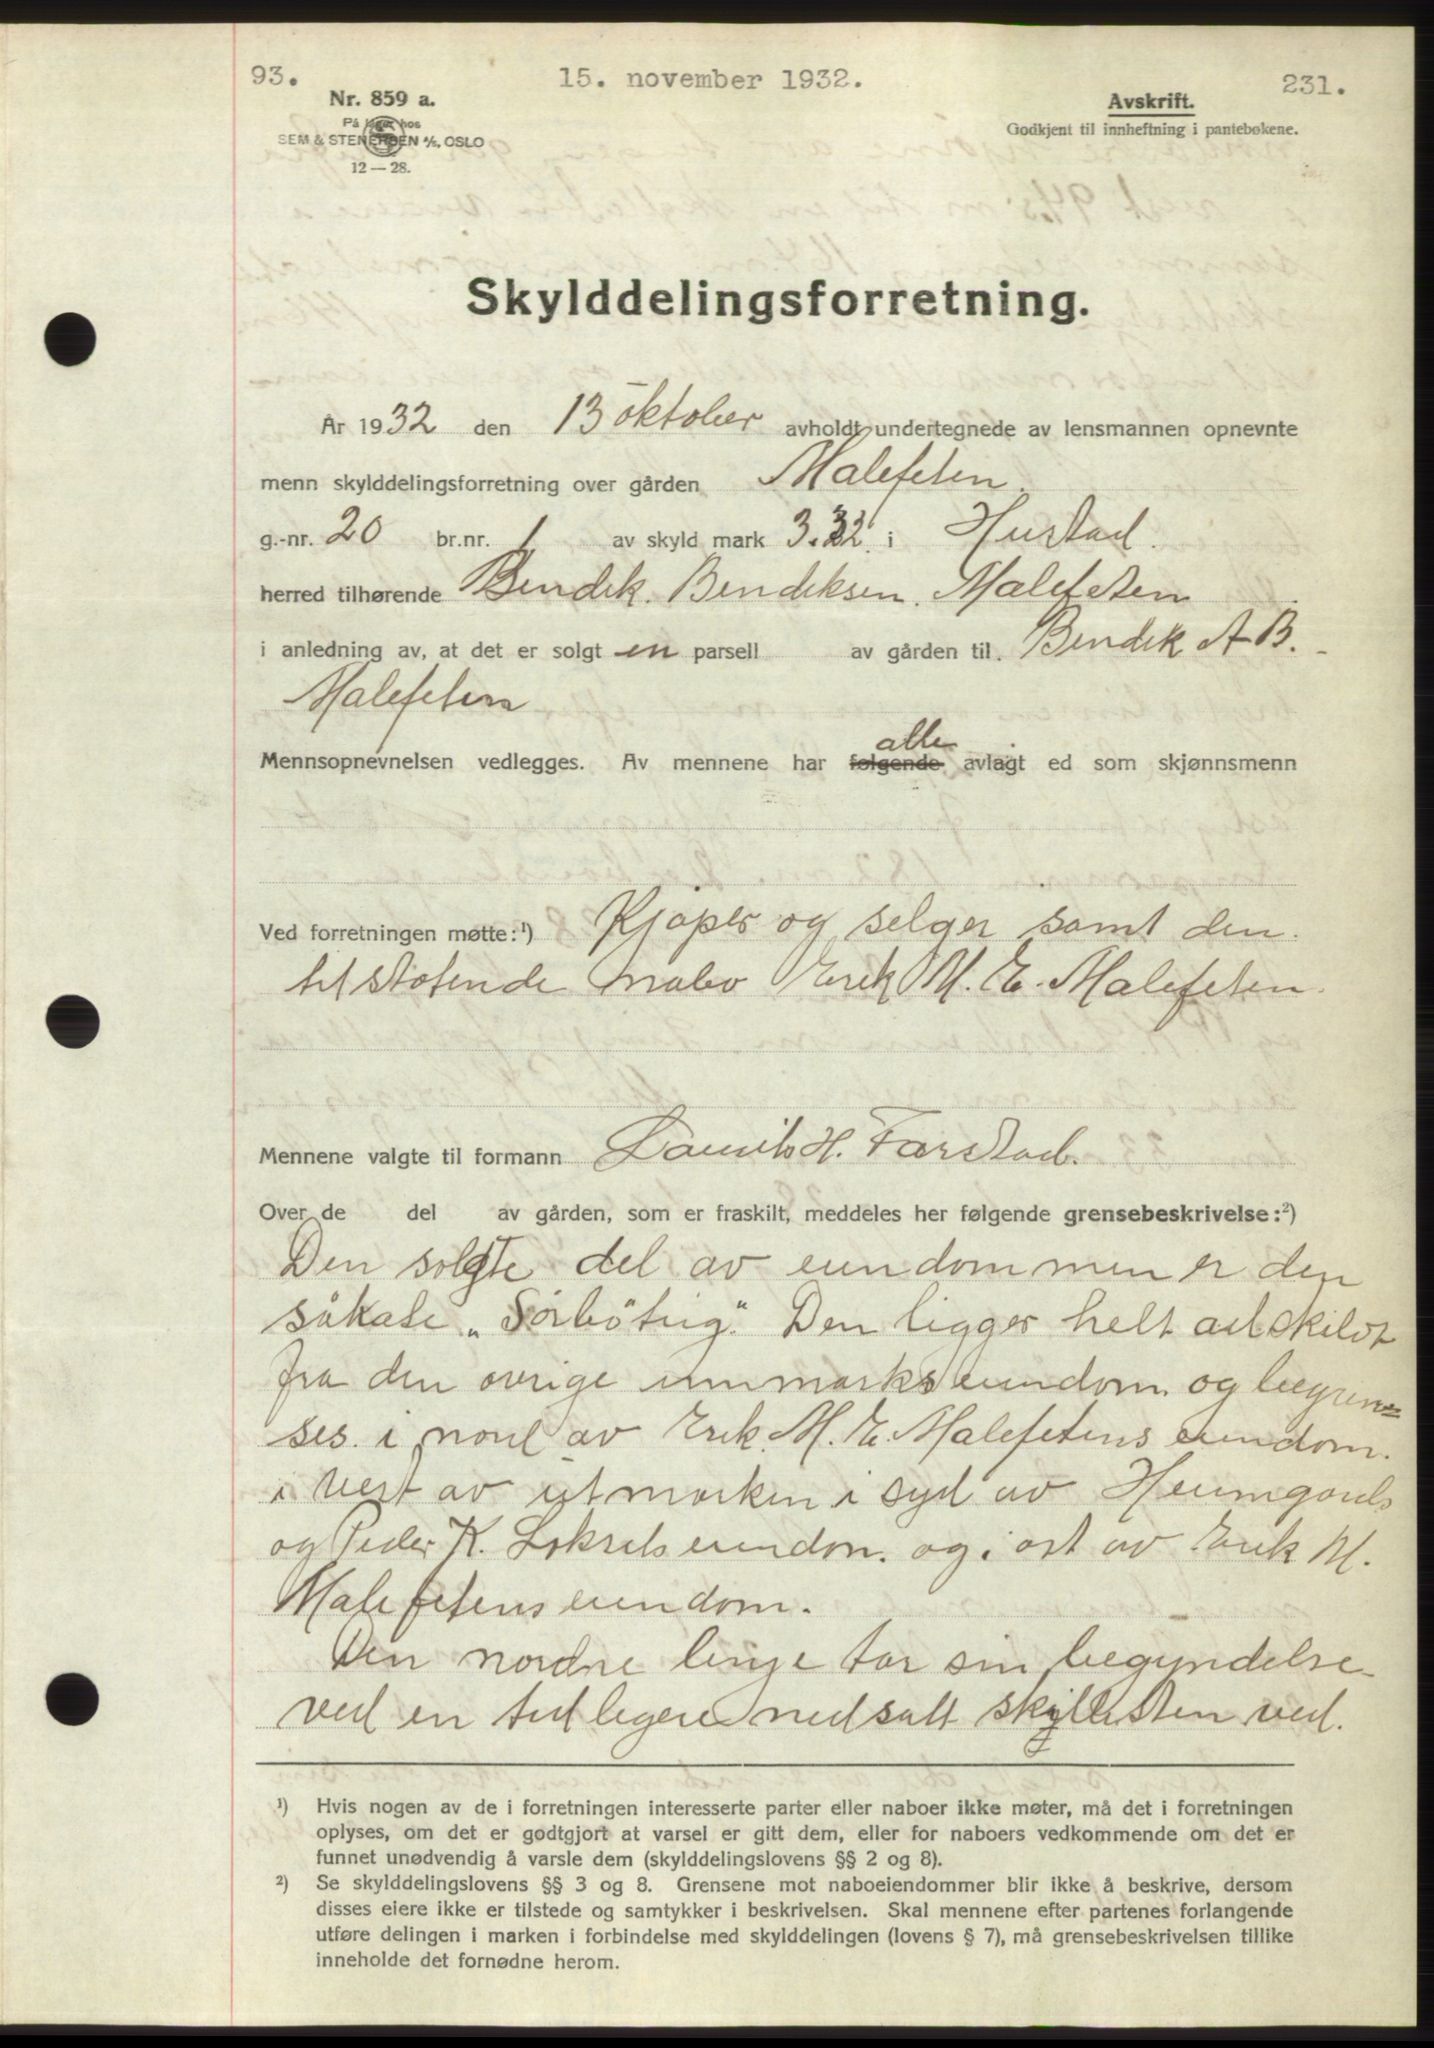 93.
15. november 1932.
231.
Nr. 859 a.
På lager hos
SEM & STENERSEN A/S, OSLO
12 — 28.
Avskrift.
Godkjent til innheftning i pantebøkene.
Skylddelingsforretning.
År 1932 den 13 oktober avholdt undertegnede av lensmannen opnevnte
menn skylddelingsforretning over gården Malefeten.
g.-nr. 20 br.nr. 1 av skyld mark 3.32 i Hustad.
herred tilhørende Bendik. Bendiksen. Malefeten
i anledning av, at det er solgt en parsell av gården til. Bendik A B.
Malefeten
alle
Mennsopnevnelsen vedlegges. Av mennene har følgende avlagt ed som skjønnsmenn
Ved forretningen møtte:¹) Kjøper og selger samt den.
tilstøtende nabo Erik M. E. Malefeten.
Mennene valgte til formann H. Farstad.
Over de del av gården, som er fraskilt, meddeles her følgende grensebeskrivelse:²)
Den solgte del av eiendommen er den
såkalte „Sörbötrig." Den ligger helt adskildt
fra den øvrige innmarkseiendom. og begren=
ses. i nord av Erik. M. E. Malefetens eiendom.
i vest av utmarken i syd av Heimgards
og Peder K. Loksets eiendom. og i øst av Erik M.
Malefetens eiendom.
Den nordre linje tar sin begyndelse
ved en tidligere nedsatt skyllesten ved.
¹) Hvis nogen av de i forretningen interesserte parter eller naboer ikke møter, må det i forretningen
oplyses, om det er godtgjort at varsel er gitt dem, eller for naboers vedkommende om det er
funnet unødvendig å varsle dem (skylddelingslovens §§ 2 og 8).
²) Se skylddelingslovens §§ 3 og 8. Grensene mot naboeiendommer blir ikke å beskrive, dersom
disses eiere ikke er tilstede og samtykker i beskrivelsen. Skal mennene efter partenes forlangende
utføre delingen i marken i forbindelse med skylddelingen (lovens § 7), må grensebeskrivelsen tillike
inneholde det fornødne herom.